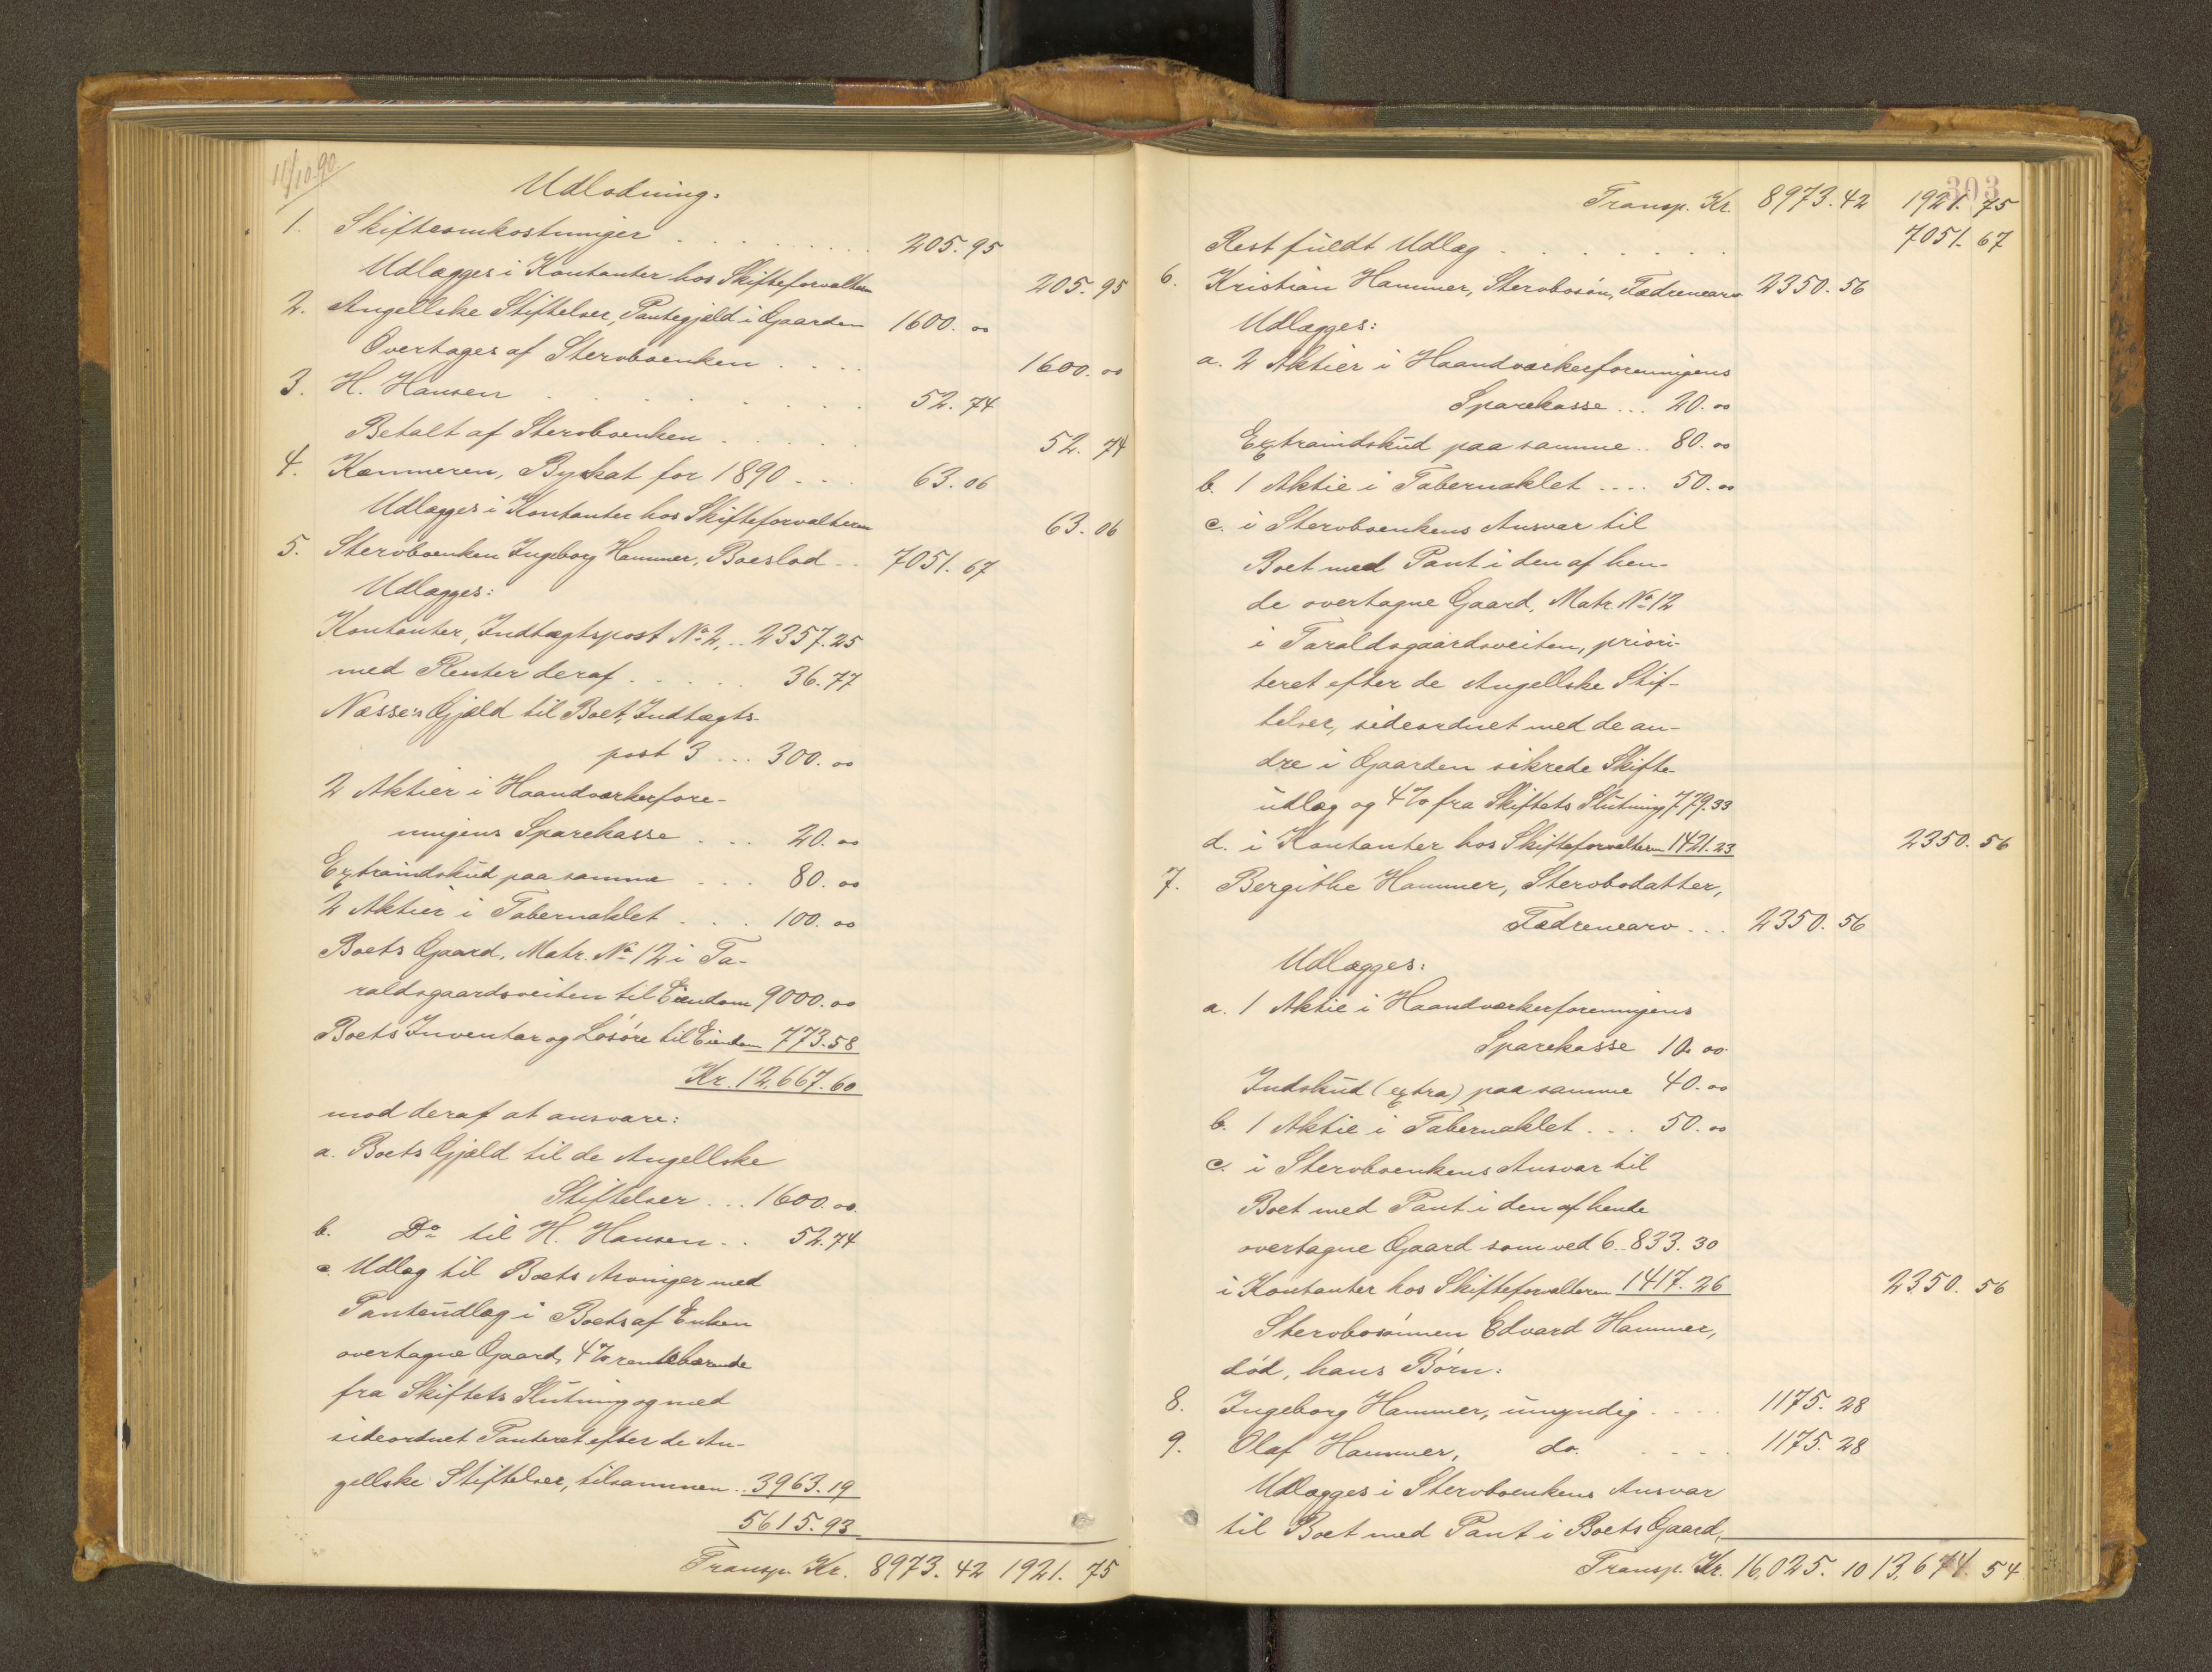 11/10.90.
Udlodning.
1. Skifteomkostninger . . . . . . . . . 205.95
Udlægges i Kontanter hos Skifteforvalteren 205.95
2. Angellske Stiftelser, Pantegjæld i Gaarden 1600.00
Overtages af Stervboenken . . . . 1600.00
3. H. Hansen . . . . . . . . . 52.74
Betalt af Stervboenken . . . . . 52.74
4. Kæmneren, Byskat for 1890 . . . 63.06
Udlægges i Kontanter hos Skifteforvalteren 63.06
5. Stervboenken Ingeborg Hammer, Boeslod . . 7051.67
Udlægges:
Kontanter, Indtægtspost No 2, .. 2357.25
med Renter deraf . . . . . 36.77
Næsses Gjæld til Boet, Indtægts-
post 3 ... 300.00
2 Aktier i Haandværkerfore-
ningens Sparekasse . . . 20.00
Extraindskud paa samme . . . 80.00
2 Aktier i Tabernaklet . . . 100.00
Boets Gaard, Matr. No 12 i Ta-
raldsgaardsveiten til Eiendom 9000.00
Boets Inventar og Løsøre til Eiendom 773.58
Kr. 12,667.60
mod deraf at ansvare:
a. Boets Gjæld til de Angellske
Stiftelser ... 1600.00.
b. Do til H. Hansen . . 52.74
c. Udlæg til Boets Arvinger med
Panteudlæg i Boets af Enken
overtagne Gaard, 4% rentebærende
fra Skiftets Slutning og med
sideordnet Panteret efter de An-
gellske Stiftelser, tilsammen .. 3963.19
5615.93
Transp. Kr. 8973.42 1921.75
303
Transp. Kr. 8973.42 1921.75
Rest fuldt Udlæg . . . . . . . 7051.67
6. Kristian Hammer, Stervbosøn, Fædrenearv 2350.56
Udlægges:
a. 2 Aktier i Haandværkerforeningens
Sparekasse ... 20.00
Extraindskud paa samme .. 80.00
b. 1 Aktie i Tabernaklet .... 50.00
c. i Stervboenkens Ansvar til
Boet med Pant i den af hen-
de overtagne Gaard, Matr. No 12
i Taraldsgaardsveiten, priori-
teret efter de Angellske Stif-
telser, sideordnet med de an-
dre i Gaarden sikrede Skifte-
udlæg og 4% fra Skiftets Slutning 779.33
d. i Kontanter hos Skifteforvalteren 1421.23 2350.56
7. Bergithe Hammer, Stervbodatter,
Fædrenearv ... 2350.56
Udlægges:
a. 1 Aktie i Haandværkerforeningens
Sparekasse 10.00
Indskud (extra) paa samme 40.00
b. 1 Aktie i Tabernaklet ... 50.00
c. i Stervboenkens Ansvar til
Boet med Pant i den af hende
overtagne Gaard som ved 6 .. 833.30
i Kontanter hos Skifteforvalteren 1417.26 2350.56
Stervbosønnen Edvard Hammer,
død, hans Børn:
8. Ingeborg Hammer, umyndig .... 1175.28
9. Olaf Hammer, do. .... 1175.28
Udlægges i Stervboenkens Ansvar
til Boet med Pant i Boets Gaard,
Transp. Kr. 16,025.10 13,674.54